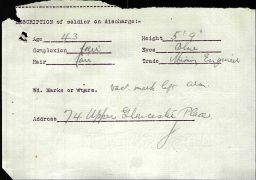 DESCRIPTION of soldier on discharge:-
Age 43 Height 5' 9"
Complexion fair Eyes Blue
Hair fair Trade Mining Engineer
Wd. Marks or W*ars. vac. mark left arm.
Address 74 Upper Gloucester Place.